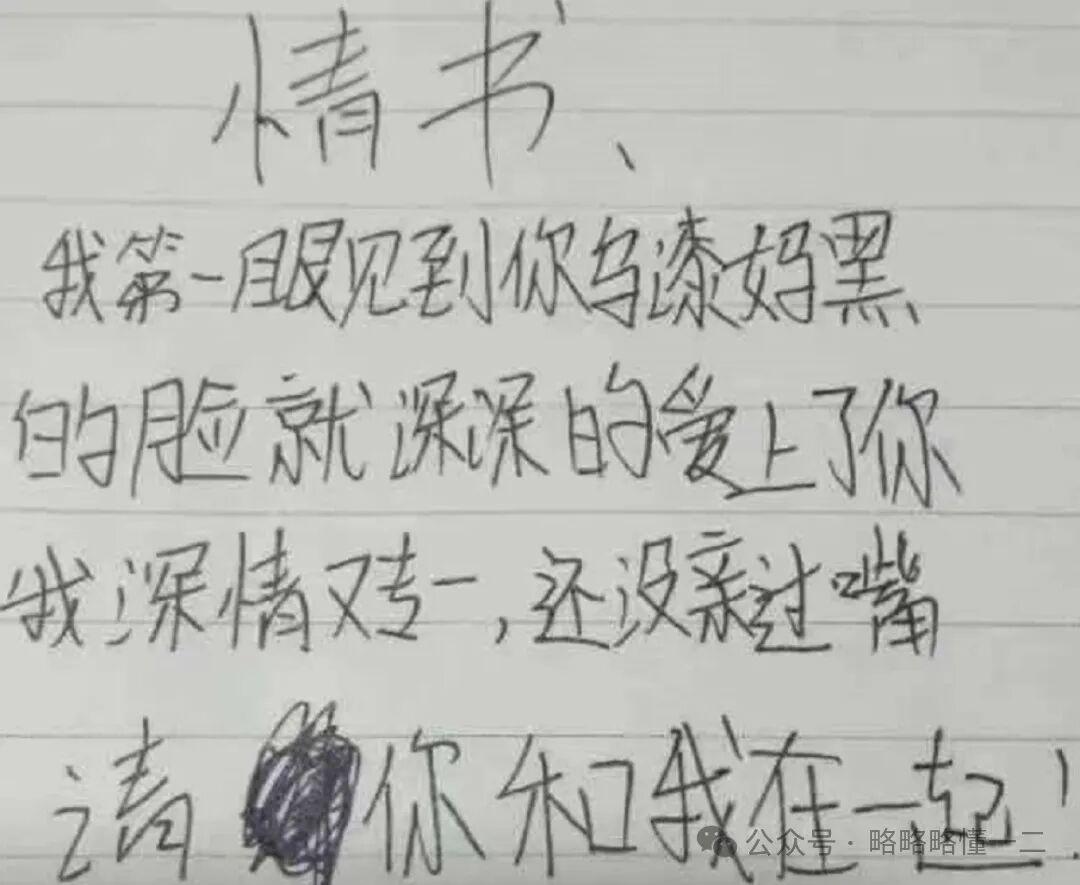 情书、
我第一眼见到你乌漆妈黑
的脸就深深的爱上了你
我深情又专一,还没亲过嘴
请你和我在一起!
公众号·略略略懂一二